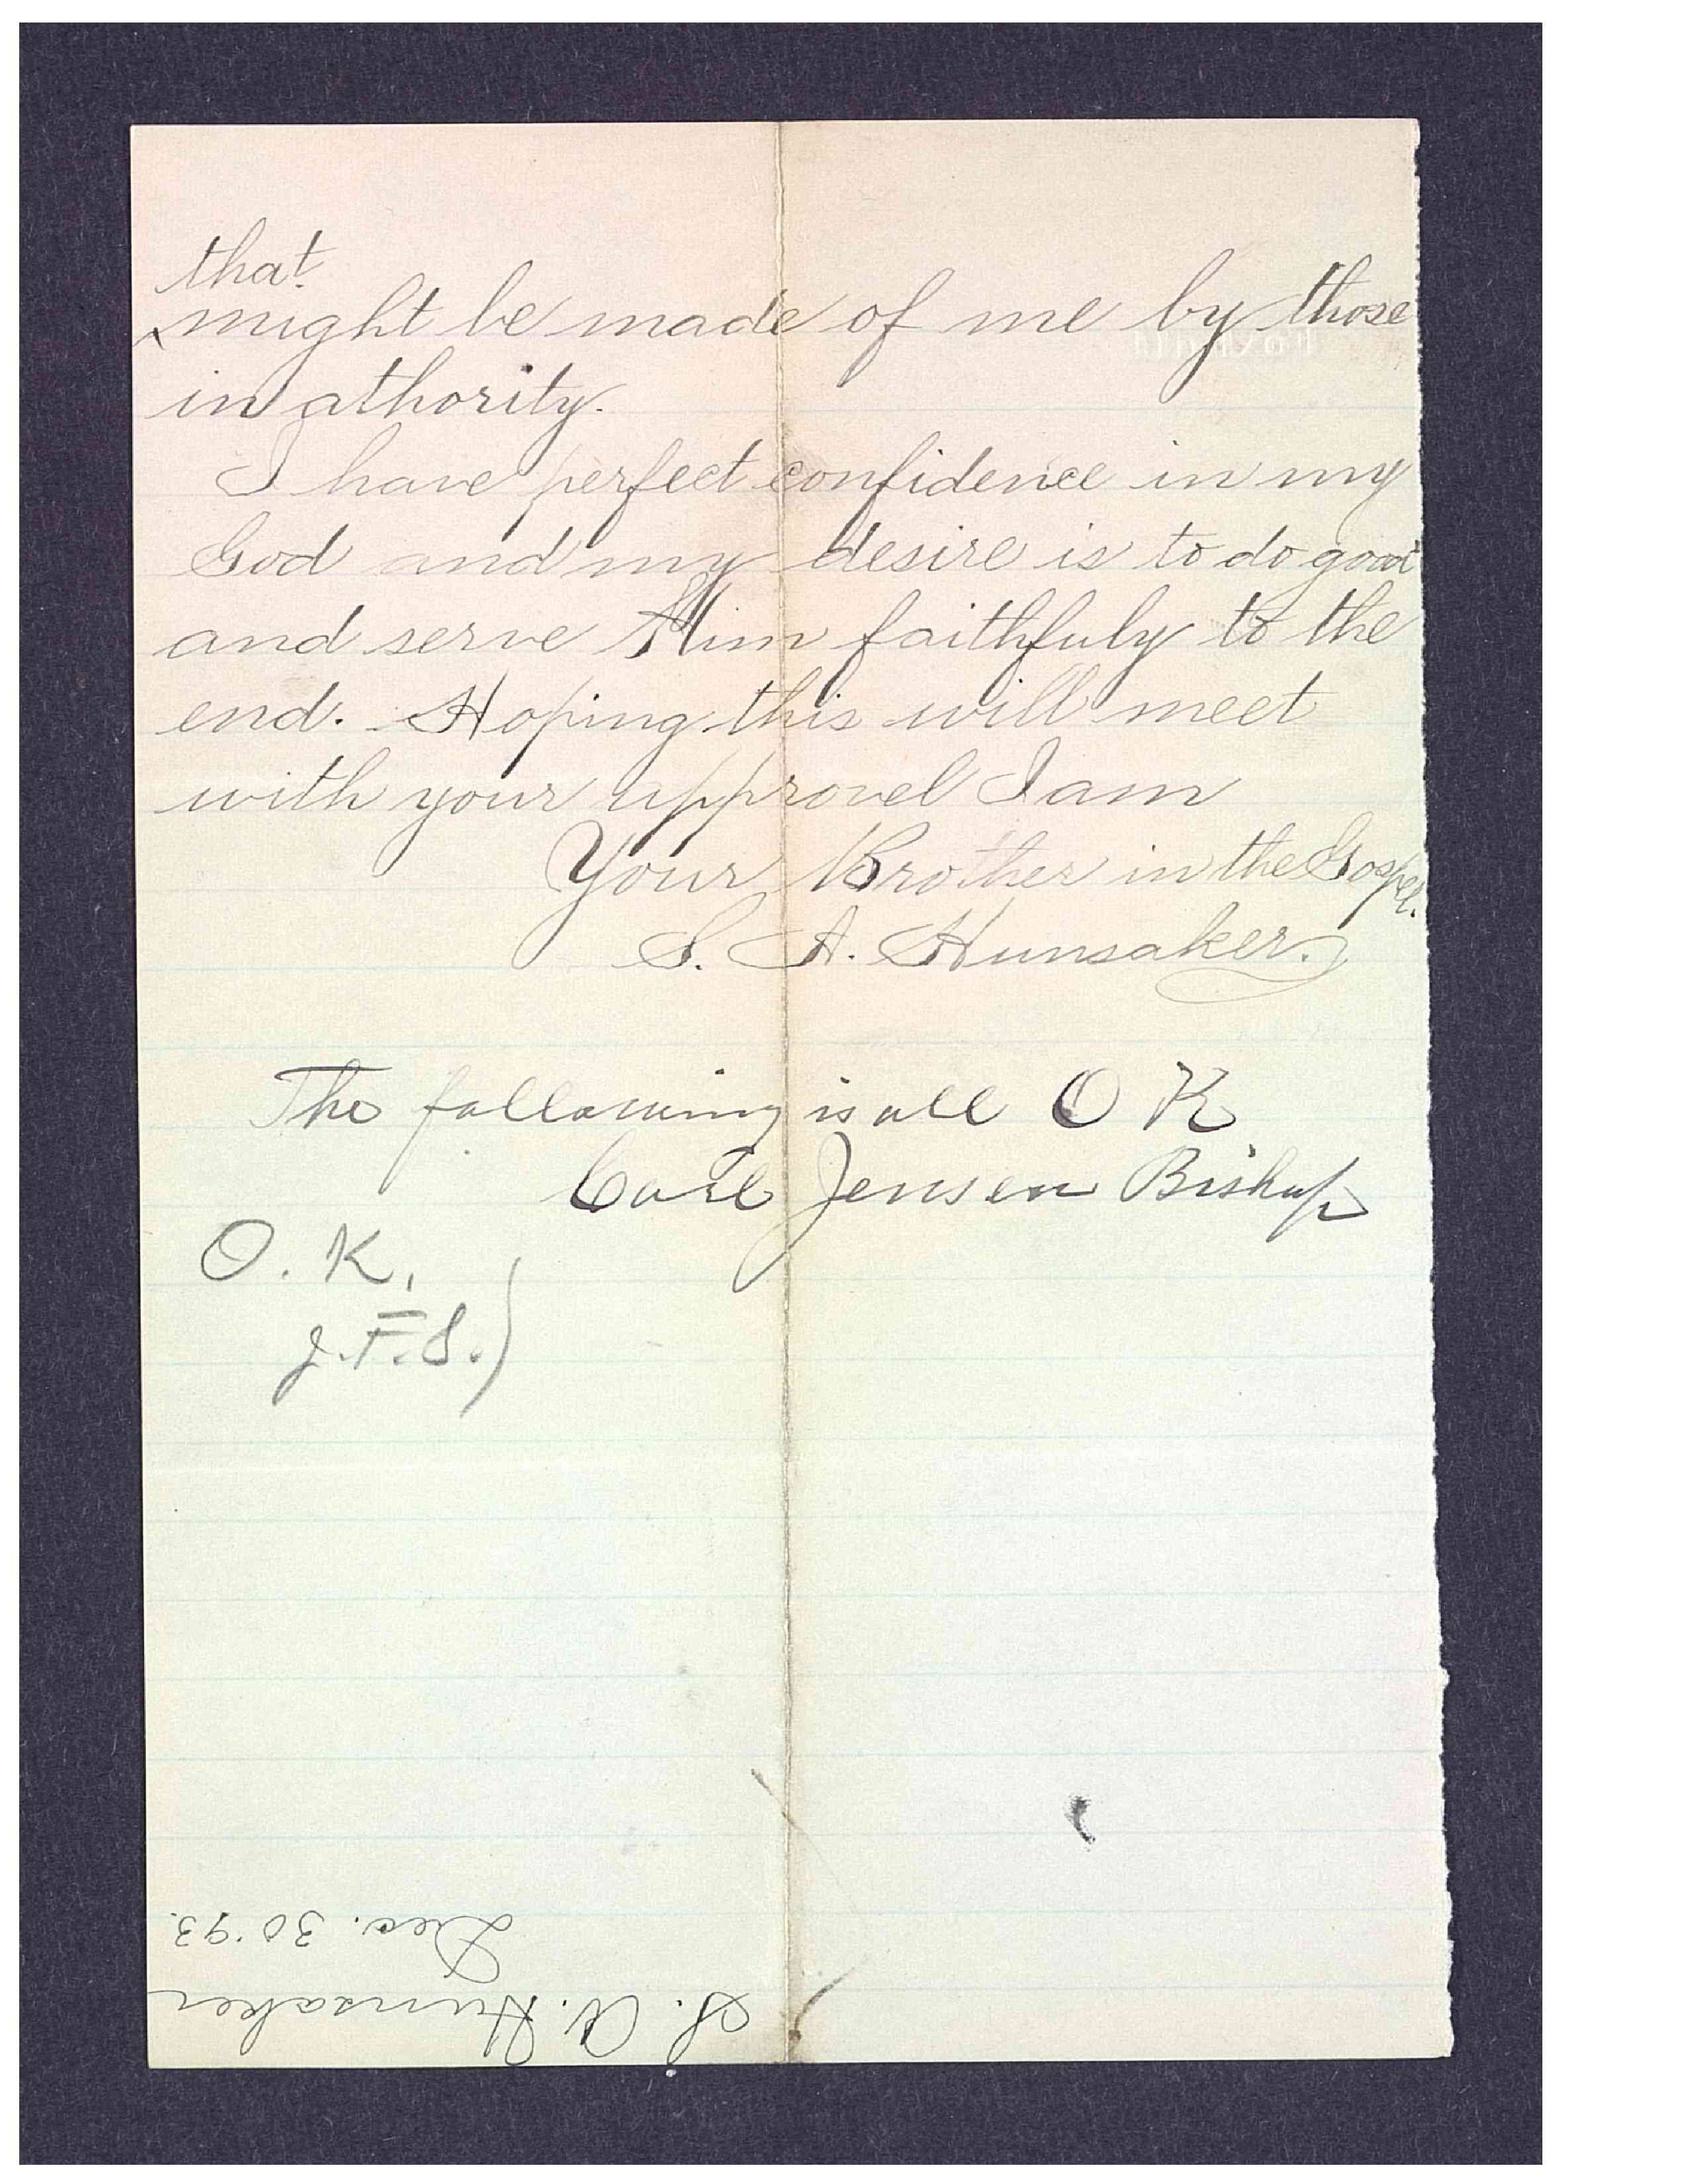 that
might be made of me by those
in athority.
I have perfect confidence in my
God and my desire is to do good
and serve Him faithfuly to the
end. Hoping this will meet
with your approvel I am
Your Brother in the Gospel.
S. A. Hunsaker.
The following is all O K
Carl Jensen Bishop
O. K.
J. F. S.)
S. A. Hunsaker
Dec. 30 '93.